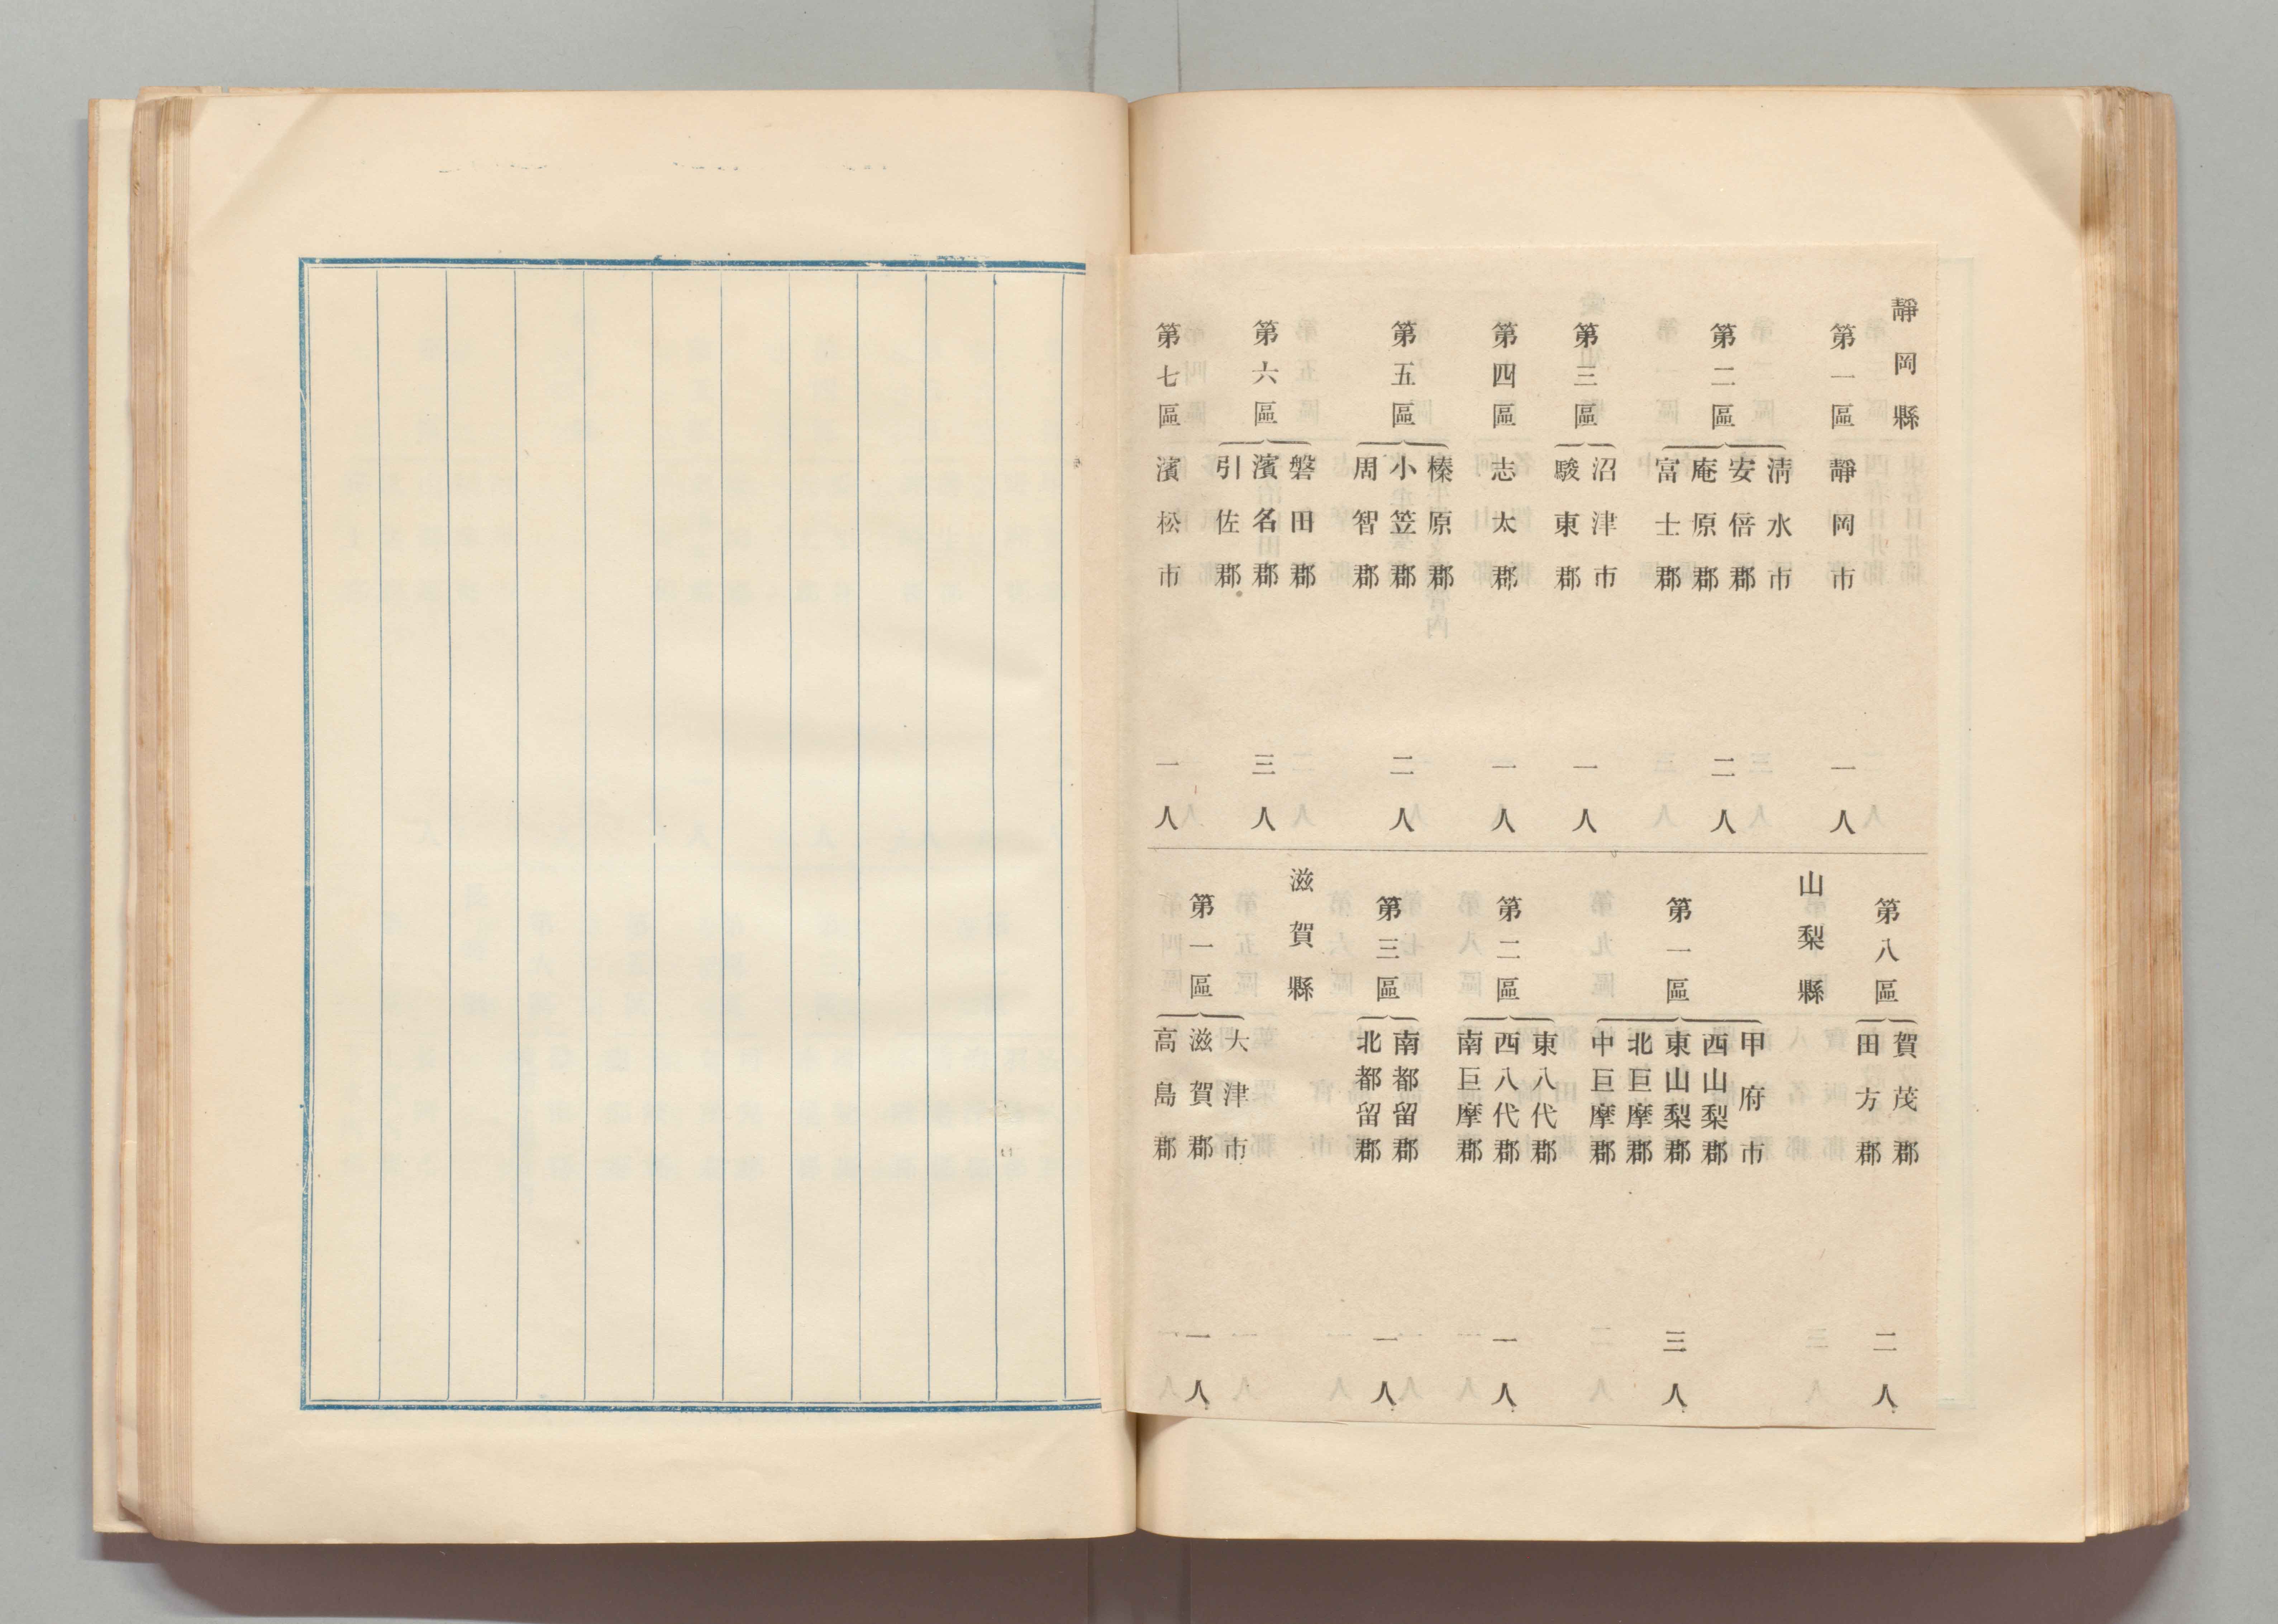 靜岡縣
第一區 靜岡市 一人
第二區 淸水市 安倍郡 庵原郡 富士郡 二人
第三區 沼津市 駿東郡 一人
第四區 志太郡 一人
第五區 榛原郡 小笠郡 周智郡 二人
第六區 磐田郡 濱名郡 引佐郡 三人
第七區 濱松市 一人
第八區 賀茂郡 田方郡 二人
山梨縣
第一區 甲府市 西山梨郡 東山梨郡 北巨摩郡 中巨摩郡 三人
第二區 東八代郡 西八代郡 南巨摩郡 一人
第三區 南都留郡 北都留郡 一人
滋賀縣
第一區 大津市 滋賀郡 高島郡 一人